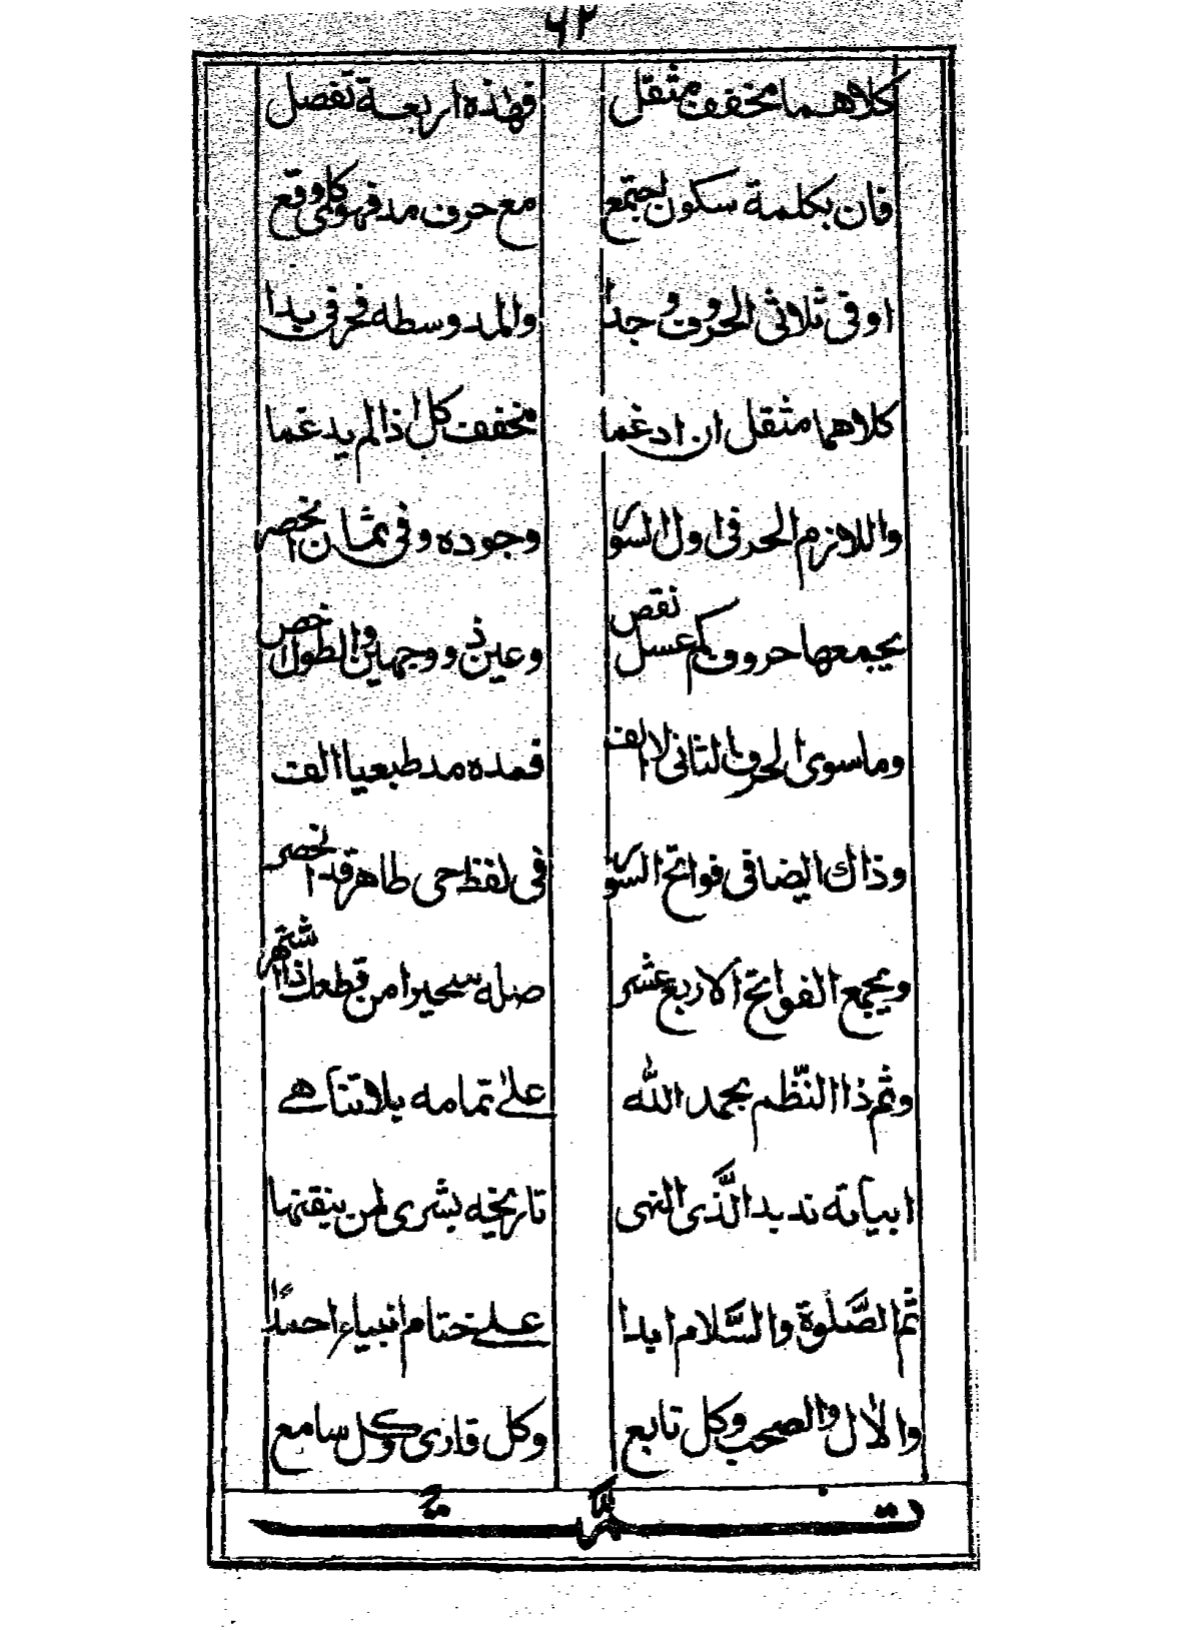 ٦٢
كلاهما مخفف مثقل فهذه اربعة تفصل
فان بكلمة سكون اجتمع مع حرف مد فهو كلمى وقع
او فى ثلاثى الحروف وجدا والمد وسطه فحرفى بدا
كلاهما مثقل ان ادغما مخفف كل اذا لم يدغما
واللازم الحرفى اول السور وجوده وفى ثمان انحصر
يجمعها حروف كم عسل نقص وعين ذو وجهين والطول اخص
وما سوى الحرف الثانى لا الف فمده مد طبعيا الف
وذاك ايضا فى فواتح السور فى لفظ حى طاهر قد انحصر
ويجمع الفواتح الاربع عشر صله سحيرا من قطعك ذا اشتهر
وتم ذا النظم بحمد الله على تمامه بلا تناهے
ابياته ند بدا لذى النهى تاريخه بشرى لمن يتقنها
ثم الصلوة والسلام ابدا على ختام انبياء احمدا
والاٰل والصحب وكل تابع وكل قارئ وكل سامع